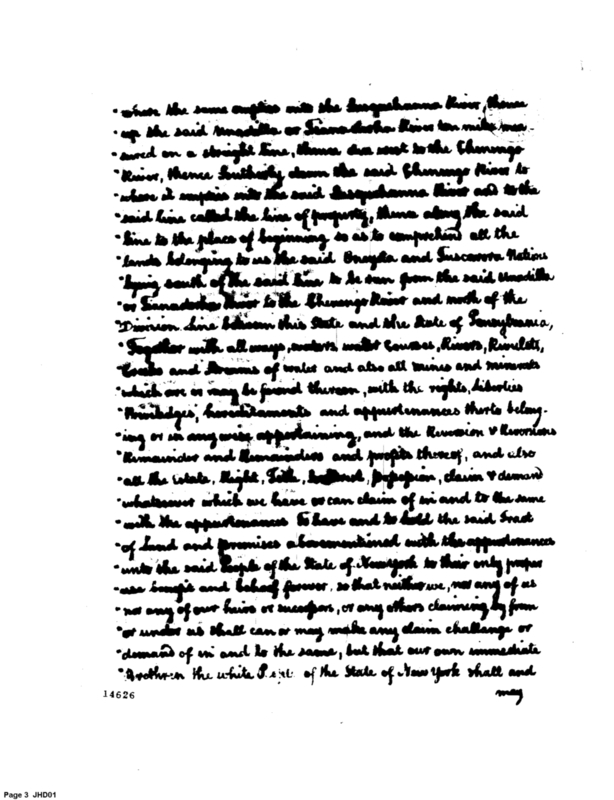 "where the same empties into the Susquehanna River, thence
"up the said Unadilla or Tianadorha River ten miles mea-
"sured on a straight line, thence due west to the Chenengo
"River, thence Southerly down the said Chenengo River to
"where it empties into the said Susquehanna River and to the
"said line called the line of property, thence along the said
"line to the place of beginning so as to comprehend all the
"lands belonging to us the said Oneyda and Tuscarora Nations
"lying south of the said line to be run from the said Unadilla
"or Tianadorha River to the Chenengo River and north of the
"Division Line between this State and the State of Pensylvania,
"Together with all ways, waters, water Courses, Rivers, Rivulets,
"Creeks and Streams of water and also all mines and minerals
"which are or may be found thereon, with the rights, liberties
"Priviledges, hereditaments and appurtenances therto belong-
"ing or in any wise appertaining, and the Reversion & Reversions
"Remainder and Remainders and profits thereof, and also
"all the estate, Right, Title, Interest, possession, claim & demand
"whatsoever which we have or can claim of in and to the same
"with the appurtenances To have and to hold the said Tract
"of Land and premises abovementioned with the appurtenances
"unto the said People of the State of Newyork to their only proper
"use benefit and behoof forever, so that neither we, nor any of us
"nor any of our heirs or successors, or any others claiming by from
"or under us shall can or may make any claim challenge or
"demand of in and to the same, but that our own immediate
"Brethren the white People of the State of New York shall and
may
14626
Page 3 JHD01